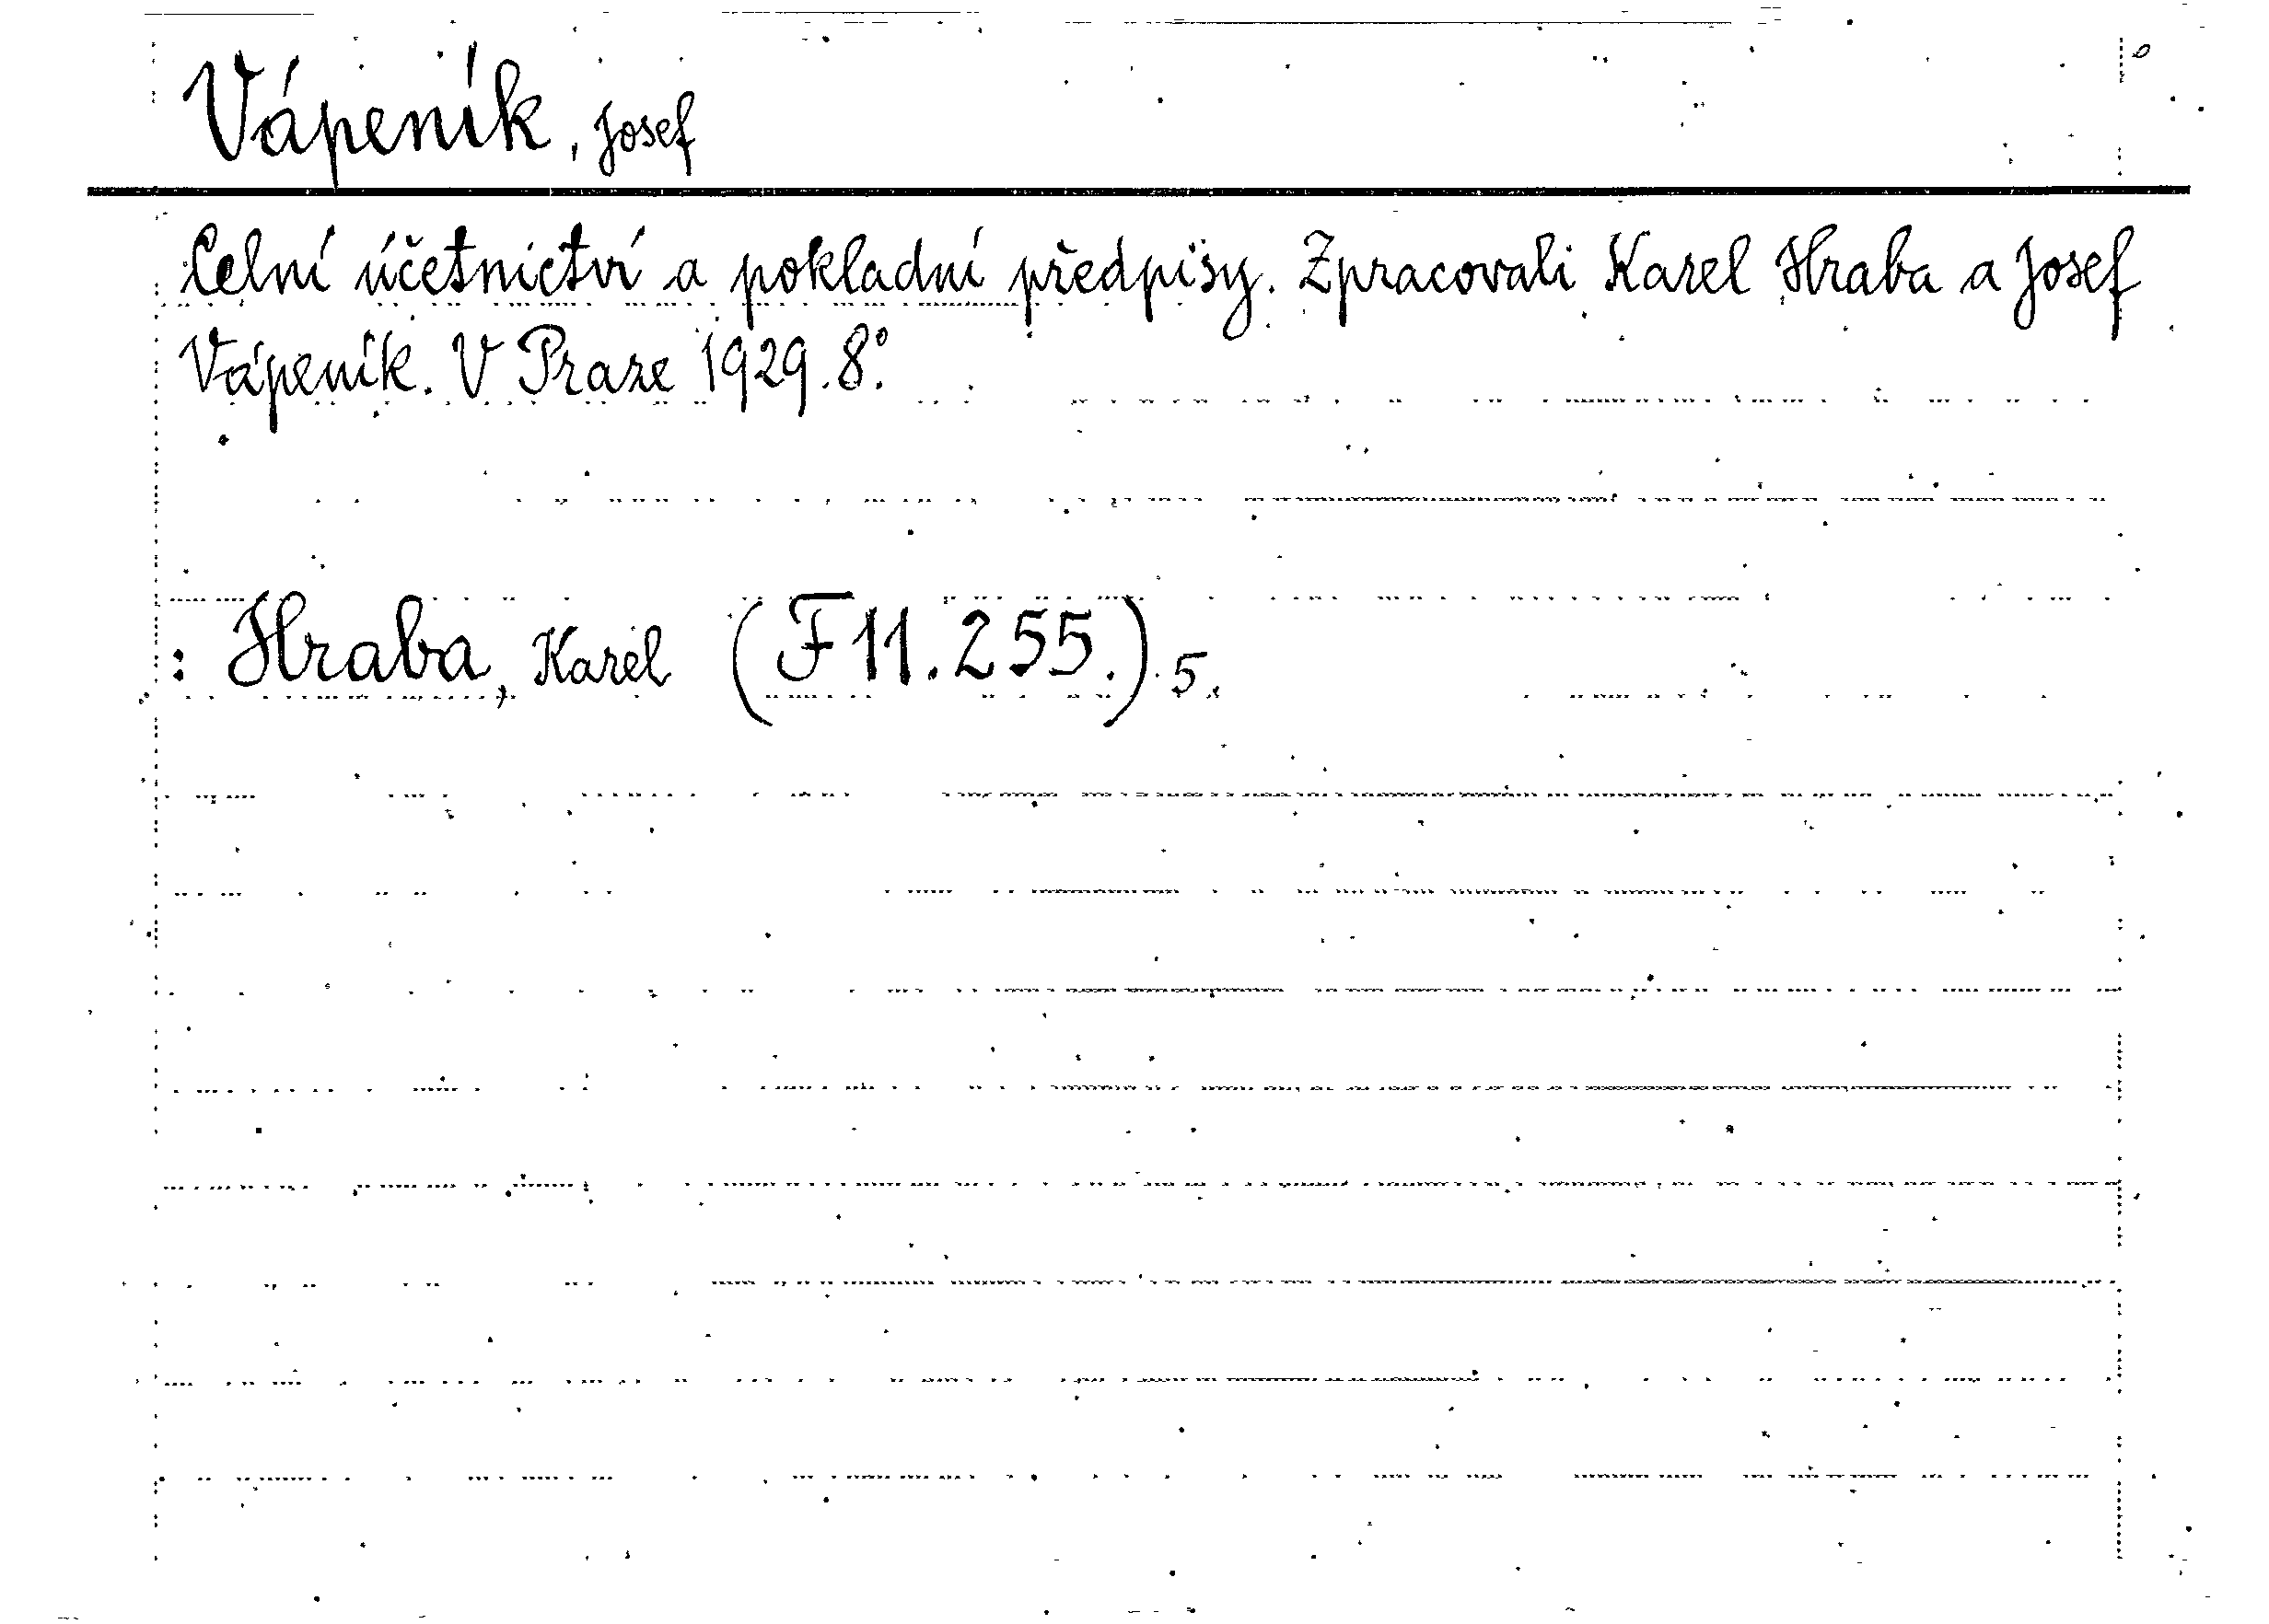 Vápeník, Josef
Celní účetnictví a pokladní předpisy. Zpracovali Karel Hraba a Josef
Vápeník. V Praze 1929. 8°.
: Hraba, Karel (F 11.255.) 5.